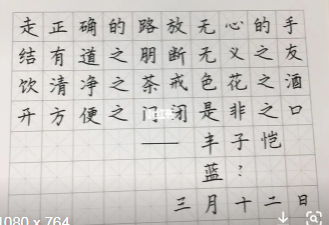 走正确的路放无心的手
结有道之朋断无义之友
饮清净之茶戒色花之酒
开方便之门闭是非之口
——丰子恺
蓝?
三月十二日
1080 x 764